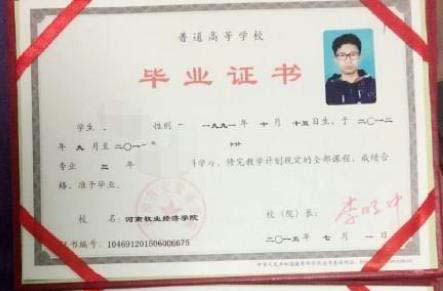 普通高等学校
毕业证书
学生 性别 一九九一年十月十五日生，于二〇一二
年九月至二〇一
专业 三年 学习，修完教学计划规定的全部课程，成绩合
格，准予毕业。
校 名：河南牧业经济学院 校（院）长：李明中
证书编号：104691201506006675 二〇一五年七月一日